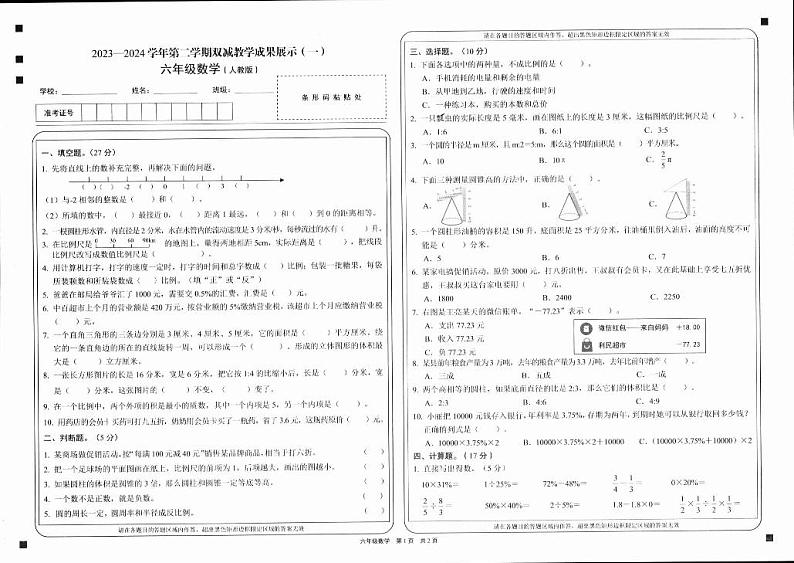 2023—2024学年第二学期双减教学成果展示（一）
六年级数学（人教版）
学校： 姓名： 班级：
准考证号
条形码粘贴处
一、填空题。（27分）
1. 先将直线上的数补充完整，再解决下面的问题。
（ ）（ ） -2 （ ） 0 1 （ ） 3 （ ）
（1）与-2相邻的整数是（ ）和（ ）。
（2）所填的数中，（ ）最接近0，（ ）距离1最远，（ ）和（ ）到0的距离相等。
2. 一根圆柱形水管，内直径是2分米，水在水管内的流动速度是3分米/秒，每秒流过的水有（ ）升。
3. 在比例尺是 0 30 60 90km 的地图上，量得两地相距5cm，实际距离是（ ）。把线段
比例尺改写成数值比例尺是（ ）。
4. 用计算机打字，打字的速度一定时，打字的时间和总字数成（ ）比例；包装一批糖果，每袋
所装颗数和所装袋数成（ ）比例。（填“正”或“反”）
5. 爸爸在邮局给爷爷汇了1000元，需要交0.5%的汇费，汇费是（ ）元。
6. 中百超市上个月的营业额是420万元，按营业额的5%缴纳营业税，该超市上个月应缴纳营业税
（ ）元。
7. 一个直角三角形的三条边分别是3厘米、4厘米、5厘米，它的面积是（ ）平方厘米，绕
它的一条直角边的所在的直线旋转一周，可以形成一个（ ），形成的立体图形的体积最
大是（ ）立方厘米。
8. 一张长方形图片的长是16分米，宽是6分米，把它按1:4的比缩小后，长是（ ）分米，宽
是（ ）分米，这张图片的（ ）不变，（ ）变了。
9. 在一个比例中，两个外项的积是最小的质数，其中一个内项是5，另一个内项是（ ）。
10. 用药店的会员卡买药可打九五折，奶奶用会员卡买了一瓶药，省了3.6元，这瓶药原价（ ）元。
二、判断题。（5分）
1. 某商场做促销活动，按“每满100元减40元”销售某品牌商品，相当于打六折。 （ ）
2. 把一个足球场的平面图画在纸上，比例尺的前项为1，后项越大，画出的图越小。 （ ）
3. 如果圆柱的体积是圆锥的3倍，那么圆柱和圆锥一定等底等高。 （ ）
4. 一个数不是正数，就是负数。 （ ）
5. 圆的周长一定，圆周率和半径成反比例。 （ ）
请在各题目的答题区域内作答，超出黑色矩形边框限定区域的答案无效
请在各题目的答题区域内作答，超出黑色矩形边框限定区域的答案无效
三、选择题。（10分）
1. 下面各选项中的两种量，不成比例的是（ ）。
A. 手机消耗的电量和剩余的电量
B. 从甲地到乙地，行驶的速度和时间
C. 一种练习本，购买的本数和总价
2. 一只瓢虫的实际长度是5毫米，画在图纸上的长度是3厘米，这幅图纸的比例尺是（ ）。
A. 1:6 B. 6:1 C. 3:5
3. 一个圆的半径是m厘米，且m:2=5:m，那么这个圆的面积是（ ）平方厘米。
A. 10 B. 10π C. 2/5 π
4. 下面三种测量圆锥高的方法中，正确的是（ ）。
A. B. C.
5. 一个圆柱形油桶的容积是150升，底面积是25平方分米，往油桶里倒入油后，油面的高度不可
能是（ ）分米。
A. 5 B. 6 C. 7
6. 某家电搞促销活动，原价3000元，打八折出售。王叔叔有会员卡，又在此基础上享受七五折优
惠，王叔叔买这台家电要用（ ）元。
A. 1800 B. 2400 C. 2250
7. 右图是王亮某天的微信账单，“－77.23”表示（ ）。
A. 支出77.23元
B. 收入77.23元
C. 负77.23元
微信红包——来自妈妈 +18.00
利民超市 -77.23
8. 某县前年粮食产量为3万吨，去年的粮食产量为3.3万吨，去年比前年增产（ ）。
A. 三成 B. 五成 C. 一成
9. 两个高相等的圆柱，如果底面直径的比是2:3，那么它们的体积比是（ ）。
A. 2:3 B. 4:6 C. 4:9
10. 小丽把10000元钱存入银行，年利率是3.75%，存期为两年，到期时她可以从银行取回多少钱？
正确的列式是（ ）。
A. 10000×3.75%×2 B. 10000×3.75%×2+10000 C. （10000×3.75%+10000）×2
四、计算题。（17分）
1. 直接写出得数。（5分）
10×31%= 1÷25%= 72%－48%= 3/4－1/3= 0×20%=
2/5÷8/3= 50%×40%= 2÷5%= 1.8－1.8×0= 1/2×1/3÷1/2×1/3=
请在各题目的答题区域内作答，超出黑色矩形边框限定区域的答案无效
六年级数学 第1页 共2页